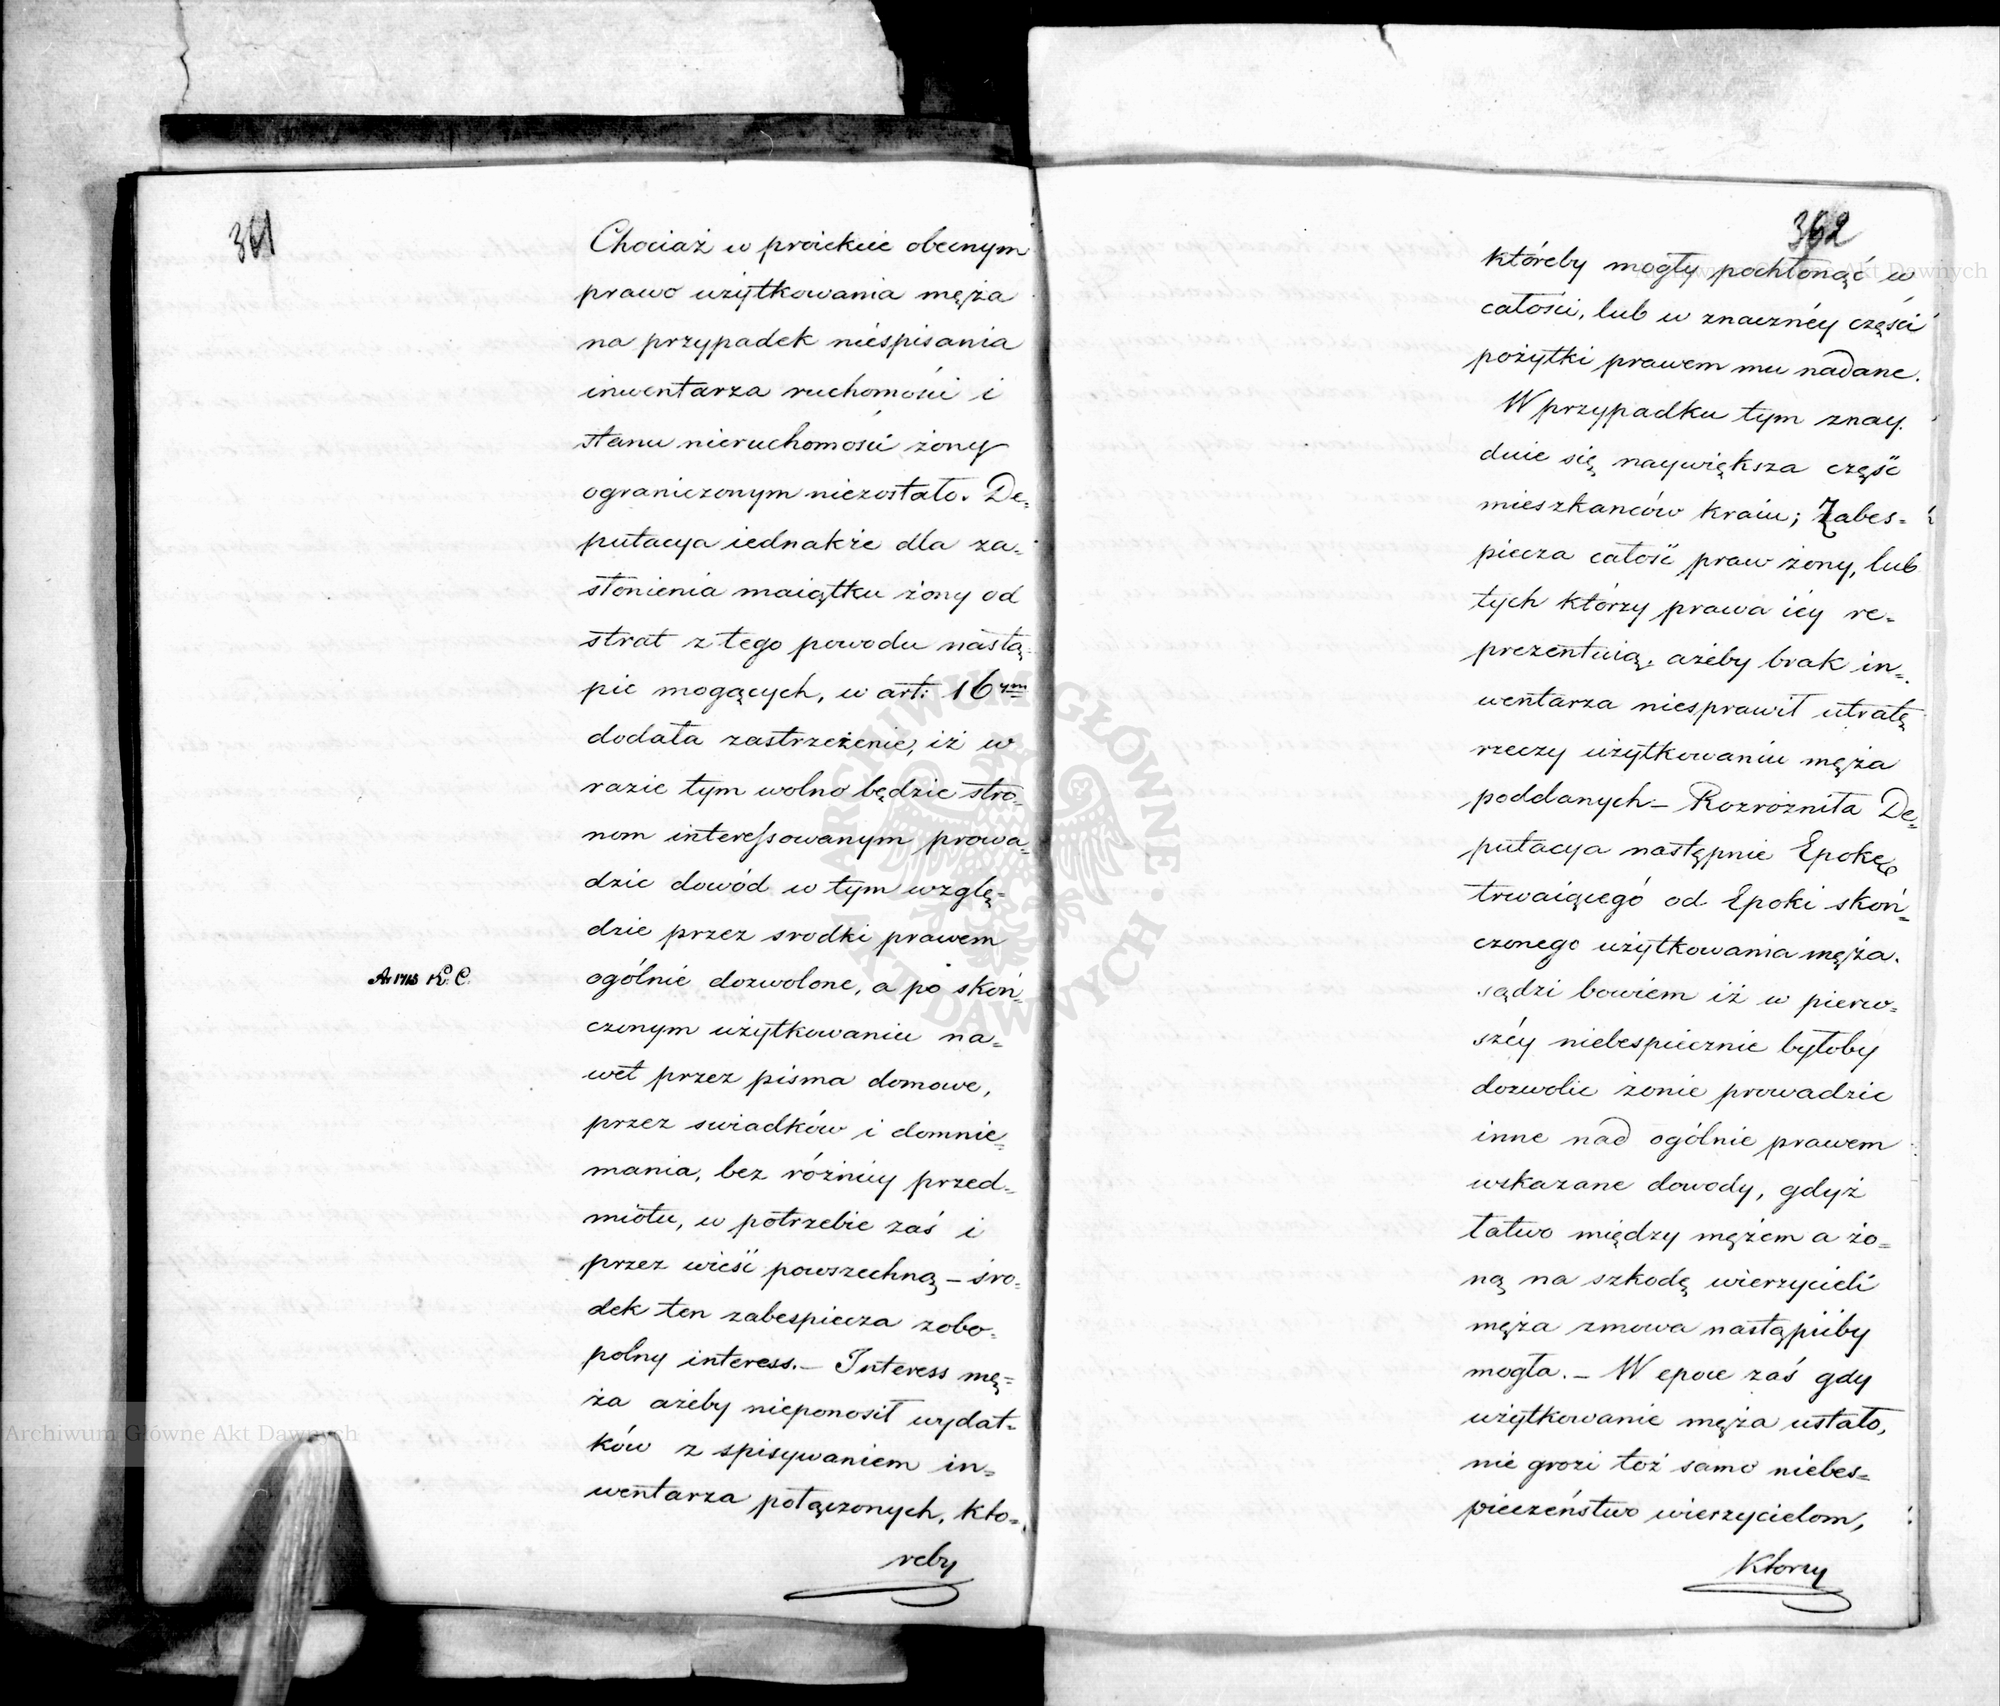 361
Chociaż w proiekcie obecnym
prawo użytkowania męża
na przypadek niespisania
inwentarza ruchomości i
stanu nieruchomości żony
ograniczonym niezostało. De=
putacya iednakże dla za=
słonienia maiątku żony od
strat z tego powodu nastą=
pić mogących, w art: 16ym
dodała zastrzeżenie, iż w
razie tym wolno będzie stro=
nom interessowanym prowa=
dzić dowód w tym wzglę=
dzie przez srodki prawem
Ar 1415 K. C.
ogólnie dozwolone, a po skoń=
czonym użytkowaniu na=
wet przez pisma domowe,
przez swiadków i domnie=
mania, bez różnicy przed=
miotu, w potrzebie zaś i
przez wieść powszechną – śro=
dek ten zabespiecza zobo=
polny interess. – Interess mę=
ża ażeby nieponosił wydat=
ków z spisywaniem in=
wentarza połączonych, któ=
reby
362
któreby mogły pochłonąć w
całości, lub w znacznéy części
pożytki prawem mu nadane.
W przypadku tym znay=
duie się naywiększa część
mieszkanców kraiu; Zabes=
piecza całość praw żony, lub
tych którzy prawa iéy re=
prezentuią, ażeby brak in=
wentarza niesprawił utratę
rzeczy użytkowaniu męża
poddanych – Rozrożniła De=
putacya następnie Epokę
trwaiącego od Epoki skoń=
czonego użytkowania męża.
sądzi bowiem iż w pierw=
széy niebespiecznie byłoby
dozwolić żonie prowadzić
inne nad ogólnie prawem
wskazane dowody, gdyż
łatwo między mężem a żo=
ną na szkodę wierzycieli
męża zmowa nastąpićby
mogła. – W epoce zaś gdy
użytkowanie męża ustało,
nie grozi toż samo niebes=
pieczeństwo wierzycielom,
Którzy
Archiwum Główne Akt Dawnych
ARCHIWUM GŁÓWNE AKT DAWNYCH